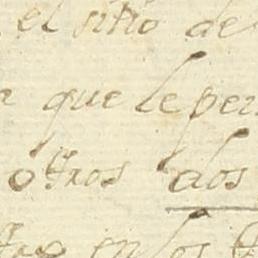 el sitio de
que le per
ótros dos
en los